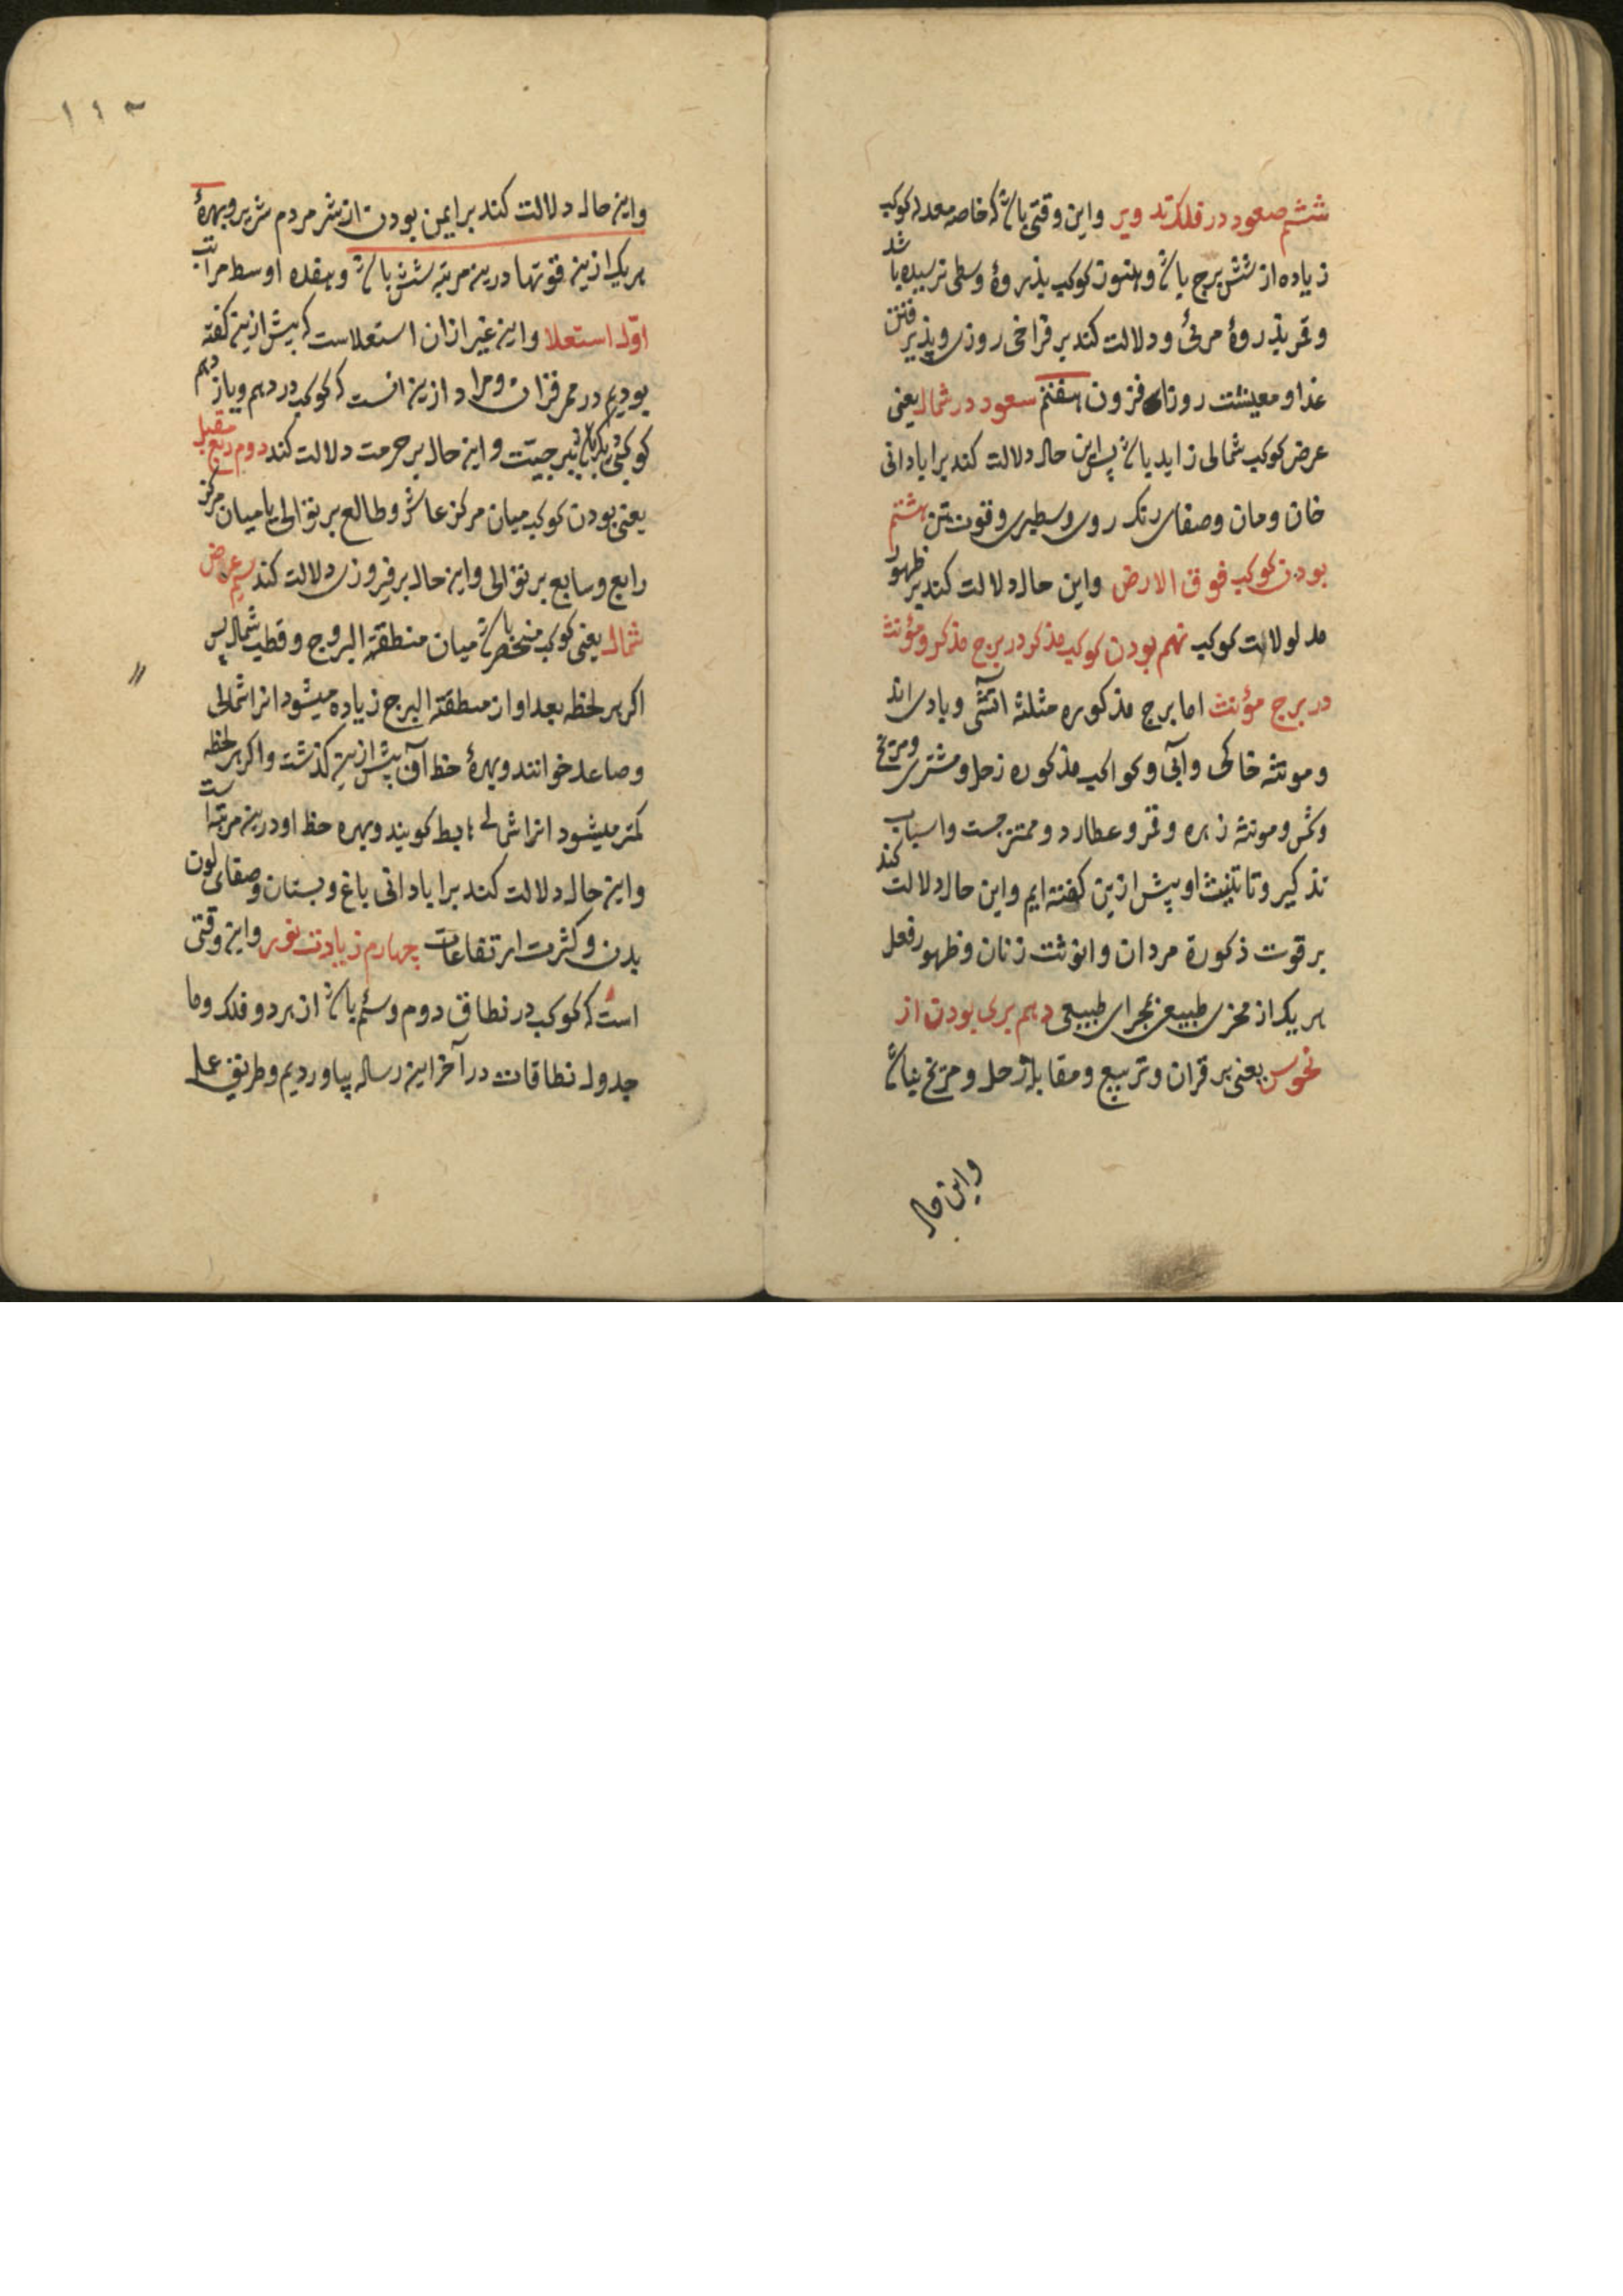 ششم صعود در فلک تدویر واین وقتی باشد که خاصه معدله کوکب
زیاده از شش برج باشد وهنوز کوکب بذروهٔ وسطی نرسیده باشد
وقمر بذروهٔ مرئی ودلالت کند بر فراخی روزی وپذیرفتن
غذا ومعیشت روزافزون هفتم سعود در شمال یعنی
عرض کوکب شمالی زاید باشد پس این حال دلالت کند بر ابادانی
خان ومان وصفای رنک روی وسطبری وقوت تن هشتم
بودن کوکب فوق الارض واین حال دلالت کند بر ظهور
مدلولات کوکب نهم بودن کوکب مذکر در برج مذکر ومؤنث
در برج مؤنث اما برج مذکوره مثلثه اتشی وبادی اند
ومونثه خاکی وآبی وکواکب مذکوره زحل ومشتری ومریخ
وشمس ومونثه زهره وقمر وعطارد وممتزجست واسباب
تذکیر وتانیث او پیش ازین کفته ایم واین حال دلالت کند
بر قوت ذکورة مردان وانوثت زنان وظهور فعل
هر یک از مجری طبیعی بمجرای طبیعی دهم بری بودن از
نحوس یعنی بر قران وتربیع ومقابلهٔ زحل ومریخ نباشد
واین حال
۱۴۳
واین حال دلالت کند بر ایمن بودن از شر مردم شریر وبهرهٔ
هر یک ازین قوتها درین مرتبه شش باشد وهفده اوسط مراتب
اوّل استعلا واین غیر ازان استعلاست که پیش ازین کفته
بودیم در ممر قران ومراد ازین انست که کوکب در دهم ویازدهم
کوکبی دیکر باشد واین حال بر حرمت دلالت کند دوم ربع مقبل
یعنی بودن کوکب میان مرکز عاشر وطالع بر توالی یا میان مرکز
رابع وسابع بر توالی واین حال بر فیروزی دلالت کند سیم عرض
شمال یعنی کوکب منحصر باشد میان منطقة البروج وقطب شمال پس
اکر هر لحظه بعد او از منطقة البرج زیاده میشود انرا شمالی
وصاعد خوانند وبهرهٔ حظ آن پیش ازین کذشت واکر هر لحظه
کمتر میشود انرا شمالی هابط کویند وبهره حظ او درین مرتبه است
واین حال دلالت کند بر ابادانی باغ وبستان وصفای لون
بدن وکثرت ارتفاعات چهارم زیادت نور واین وقتی
است که کوکب در نطاق دوم وسیم باشد از هر دو فلک وما
جدول نطاقات در آخر این رساله بیاوردیم وطریق عل